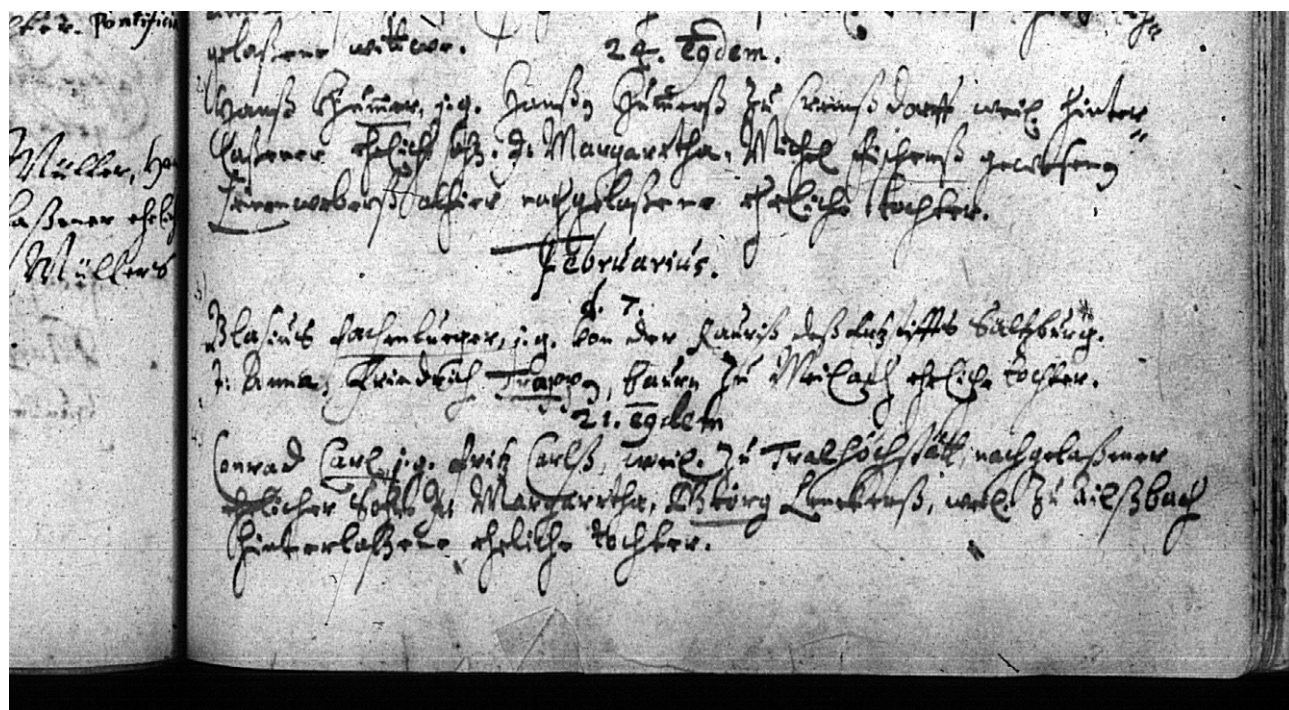 ster. Pontificiu
Müller, Han
laßener ehelich
Müllers
gelaßene wittwe.
24. Eÿdem.
Hannß j. g. Hannßen zu dorff weil. hinter
laßener ehelich sohn. J. Margaretha, Michel Fischerß geweßenen
Leinenweberß alhier nachgelaßene eheliche tochter.
Februarius.
d. 7.
Blasius Fachenburger, j. g. von der Rauriß deß Ertzstiffts Saltzburg.
J. Anna, Friedrich Trappen, baurn zu Weilach eheliche tochter.
21. Eÿdem
Conrad Carl, j. g. Fritz Carlß, weil. zu Tralhöchstätt, nachgelaßener
ehelicher Sohn J. Margaretha, Georg weil. zu Ailßbach
hinterlaßene eheliche tochter.